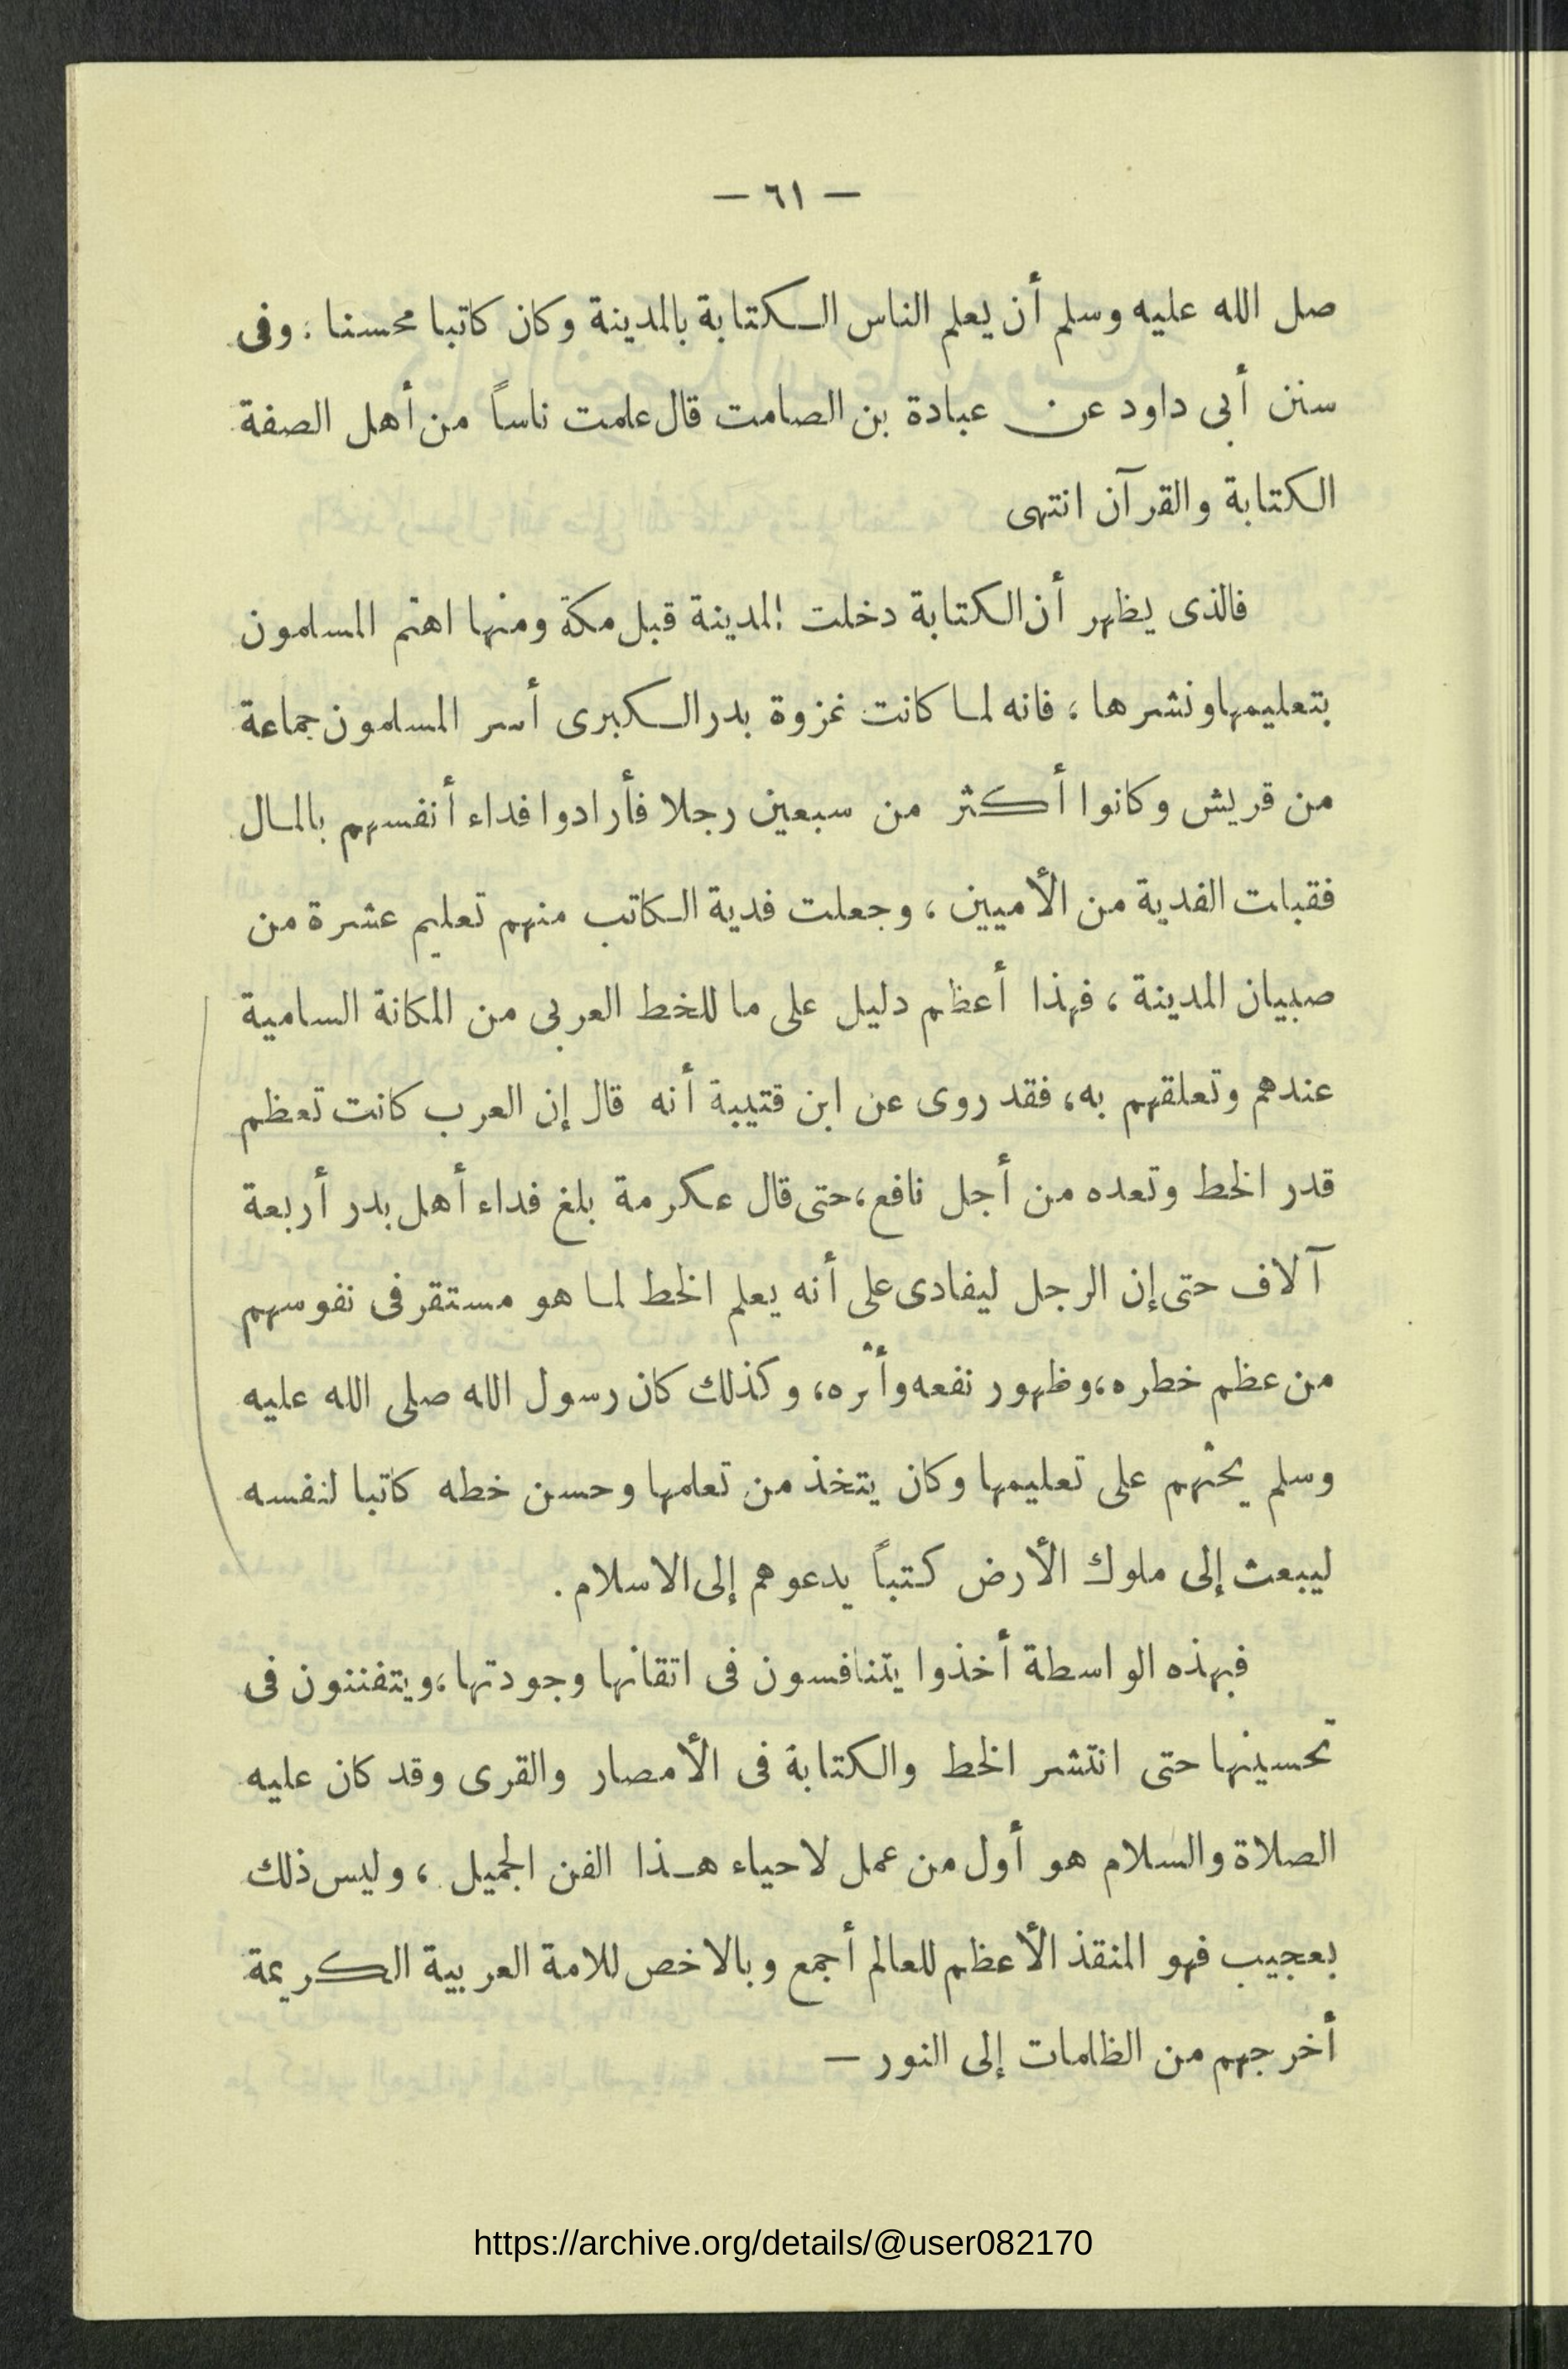 — ٦١ —
صل الله عليه وسلم أن يعلم الناس الكتابة بالمدينة وكان كاتبا محسنا . وفى
سنن أبى داود عن عبادة بن الصامت قال علمت ناساً من أهل الصفة
الكتابة والقرآن انتهى
فالذى يظهر أن الكتابة دخلت المدينة قبل مكة ومنها اهتم المسلمون
بتعليمها ونشرها ، فانه لما كانت غزوة بدر الكبرى أسر المسلمون جماعة
من قريش وكانوا أكثر من سبعين رجلا فأرادوا فداء أنفسهم بالمال
فقبلت الفدية من الأميين ، وجعلت فدية الكاتب منهم تعليم عشرة من
صبيان المدينة ، فهذا أعظم دليل على ما للخط العربى من المكانة السامية
عندهم وتعلقهم به، فقد روى عن ابن قتيبة أنه قال إن العرب كانت تعظم
قدر الخط وتعده من أجل نافع،حتى قال عكرمة بلغ فداء أهل بدر أربعة
آلاف حتى إن الرجل ليفادى على أنه يعلم الخط لما هو مستقر فى نفوسهم
من عظم خطره،وظهور نفعه وأثره، وكذلك كان رسول الله صلى الله عليه
وسلم يحثهم على تعليمها وكان يتخذ من تعلمها وحسن خطه كاتبا لنفسه
ليبعث إلى ملوك الأرض كتباً يدعوهم إلى الاسلام .
فبهذه الواسطة أخذوا يتنافسون فى اتقانها وجودتها،ويتفننون فى
تحسينها حتى انتشر الخط والكتابة فى الأمصار والقرى وقد كان عليه
الصلاة والسلام هو أول من عمل لاحياء هـذا الفن الجميل ، وليس ذلك
بعجيب فهو المنقذ الأعظم للعالم أجمع وبالاخص للامة العربية الكريمة
أخرجهم من الظلمات إلى النور —
https://archive.org/details/@user082170